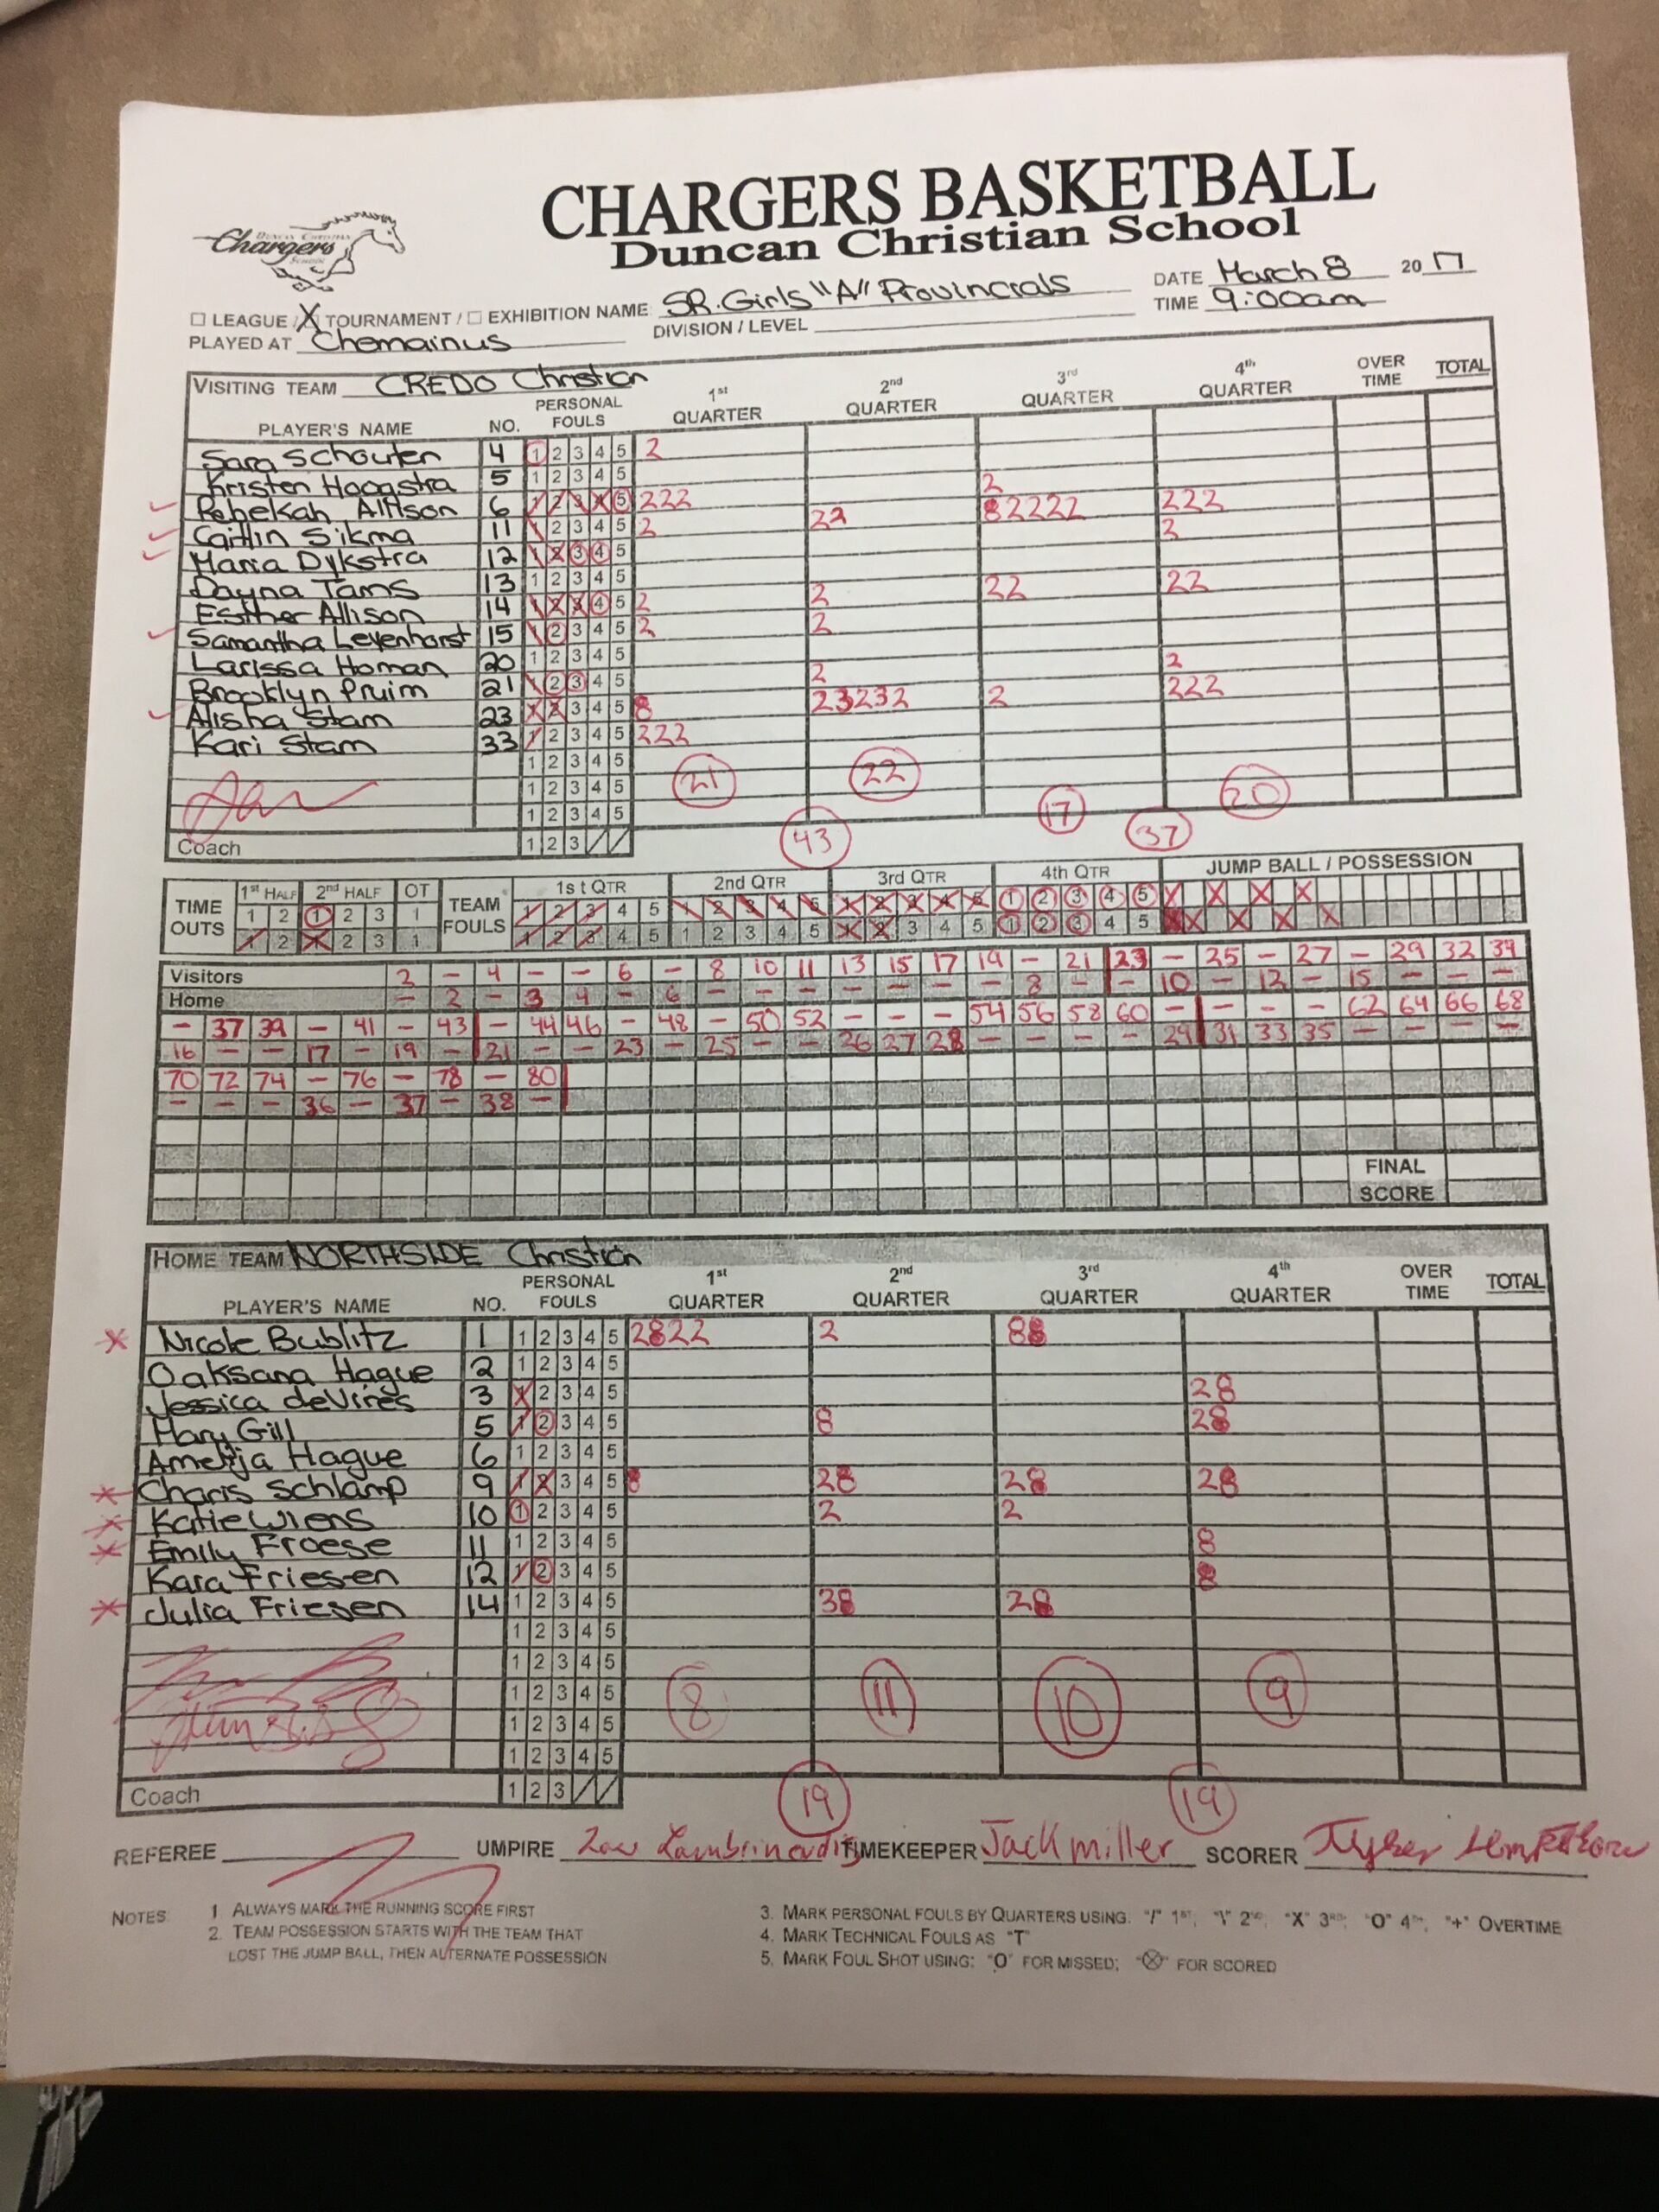 CHARGERS BASKETBALL
Duncan Christian School
Duncan Christian
Chargers
School
☐ LEAGUE / X TOURNAMENT / ☐ EXHIBITION NAME: SR. Girls "A" Provincials DATE March 8 2017
PLAYED AT Chemainus DIVISION / LEVEL TIME 9:00am
VISITING TEAM CREDO Christian
PLAYER'S NAME NO. PERSONAL FOULS 1st QUARTER 2nd QUARTER 3rd QUARTER 4th QUARTER OVER TIME TOTAL
Sara Schouten 4 1 2 3 4 5 2
Kristen Hoogstra 5 1 2 3 4 5 2
Rebekah 6 1 2 3 4 5 222 22 82222 222
Caitlin Sikma 11 1 2 3 4 5 2 2
Maria Dykstra 12 1 2 3 4 5
Dayna Tams 13 1 2 3 4 5 2 22 22
Esther Allison 14 1 2 3 4 5 2 2
Samantha Levenhorst 15 1 2 3 4 5 2
Larissa Homan 20 1 2 3 4 5 2 2
Brooklyn Pruim 21 1 2 3 4 5 23232 2 222
Alisha Stam 23 1 2 3 4 5 8
Kari Stam 33 1 2 3 4 5 222
1 2 3 4 5 21 22
1 2 3 4 5 17 20
1 2 3 4 5
Coach 1 2 3 43 37
TIME OUTS 1st HALF 2nd HALF OT TEAM FOULS 1st QTR 2nd QTR 3rd QTR 4th QTR JUMP BALL / POSSESSION
1 2 1 2 3 1 1 2 3 4 5 1 2 3 4 5 1 2 3 4 5 1 2 3 4 5 X X X X
1 2 1 2 3 1 1 2 3 4 5 1 2 3 4 5 1 2 3 4 5 1 2 3 4 5 X X X X
Visitors 2 – 4 – – 6 – 8 10 11 13 15 17 19 – 21 23 – 25 – 27 – 29 32 34
Home – 2 – 3 4 – 6 – – – – – – – 8 – – 10 – 12 – 15 – – –
– 37 39 – 41 – 43 – 44 46 – 48 – 50 52 – – – 54 56 58 60 – – – – 62 64 66 68
16 – – 17 – 19 – 21 – – 23 – 25 – – 26 27 28 – – – – 29 31 33 35 – – – –
70 72 74 – 76 – 78 – 80
– – – 36 – 37 – 38 –
FINAL
SCORE
HOME TEAM NORTHSIDE Christian
PLAYER'S NAME NO. PERSONAL FOULS 1st QUARTER 2nd QUARTER 3rd QUARTER 4th QUARTER OVER TIME TOTAL
Nicole Bublitz 1 1 2 3 4 5 2822 2 88
Oaksana Hague 2 1 2 3 4 5
Jessica deVires 3 1 2 3 4 5 28
Mary Gill 5 1 2 3 4 5 8 28
Amelija Hague 6 1 2 3 4 5
Charis Schlamp 9 1 2 3 4 5 8 28 28 28
Katie Wiens 10 1 2 3 4 5 2 2
Emily Froese 11 1 2 3 4 5 8
Kara Friesen 12 1 2 3 4 5 8
Julia Friesen 14 1 2 3 4 5 38 28
1 2 3 4 5
1 2 3 4 5
1 2 3 4 5 8 11 10 9
1 2 3 4 5
1 2 3 4 5
Coach 1 2 3 19 19
REFEREE UMPIRE TIMEKEEPER Jack miller SCORER
NOTES: 1. ALWAYS MARK THE RUNNING SCORE FIRST
2. TEAM POSSESSION STARTS WITH THE TEAM THAT
LOST THE JUMP BALL, THEN ALTERNATE POSSESSION
3. MARK PERSONAL FOULS BY QUARTERS USING: "/" 1ST; "\" 2ND; "X" 3RD; "O" 4TH; "+" OVERTIME
4. MARK TECHNICAL FOULS AS "T"
5. MARK FOUL SHOT USING: "O" FOR MISSED; "⊗" FOR SCORED